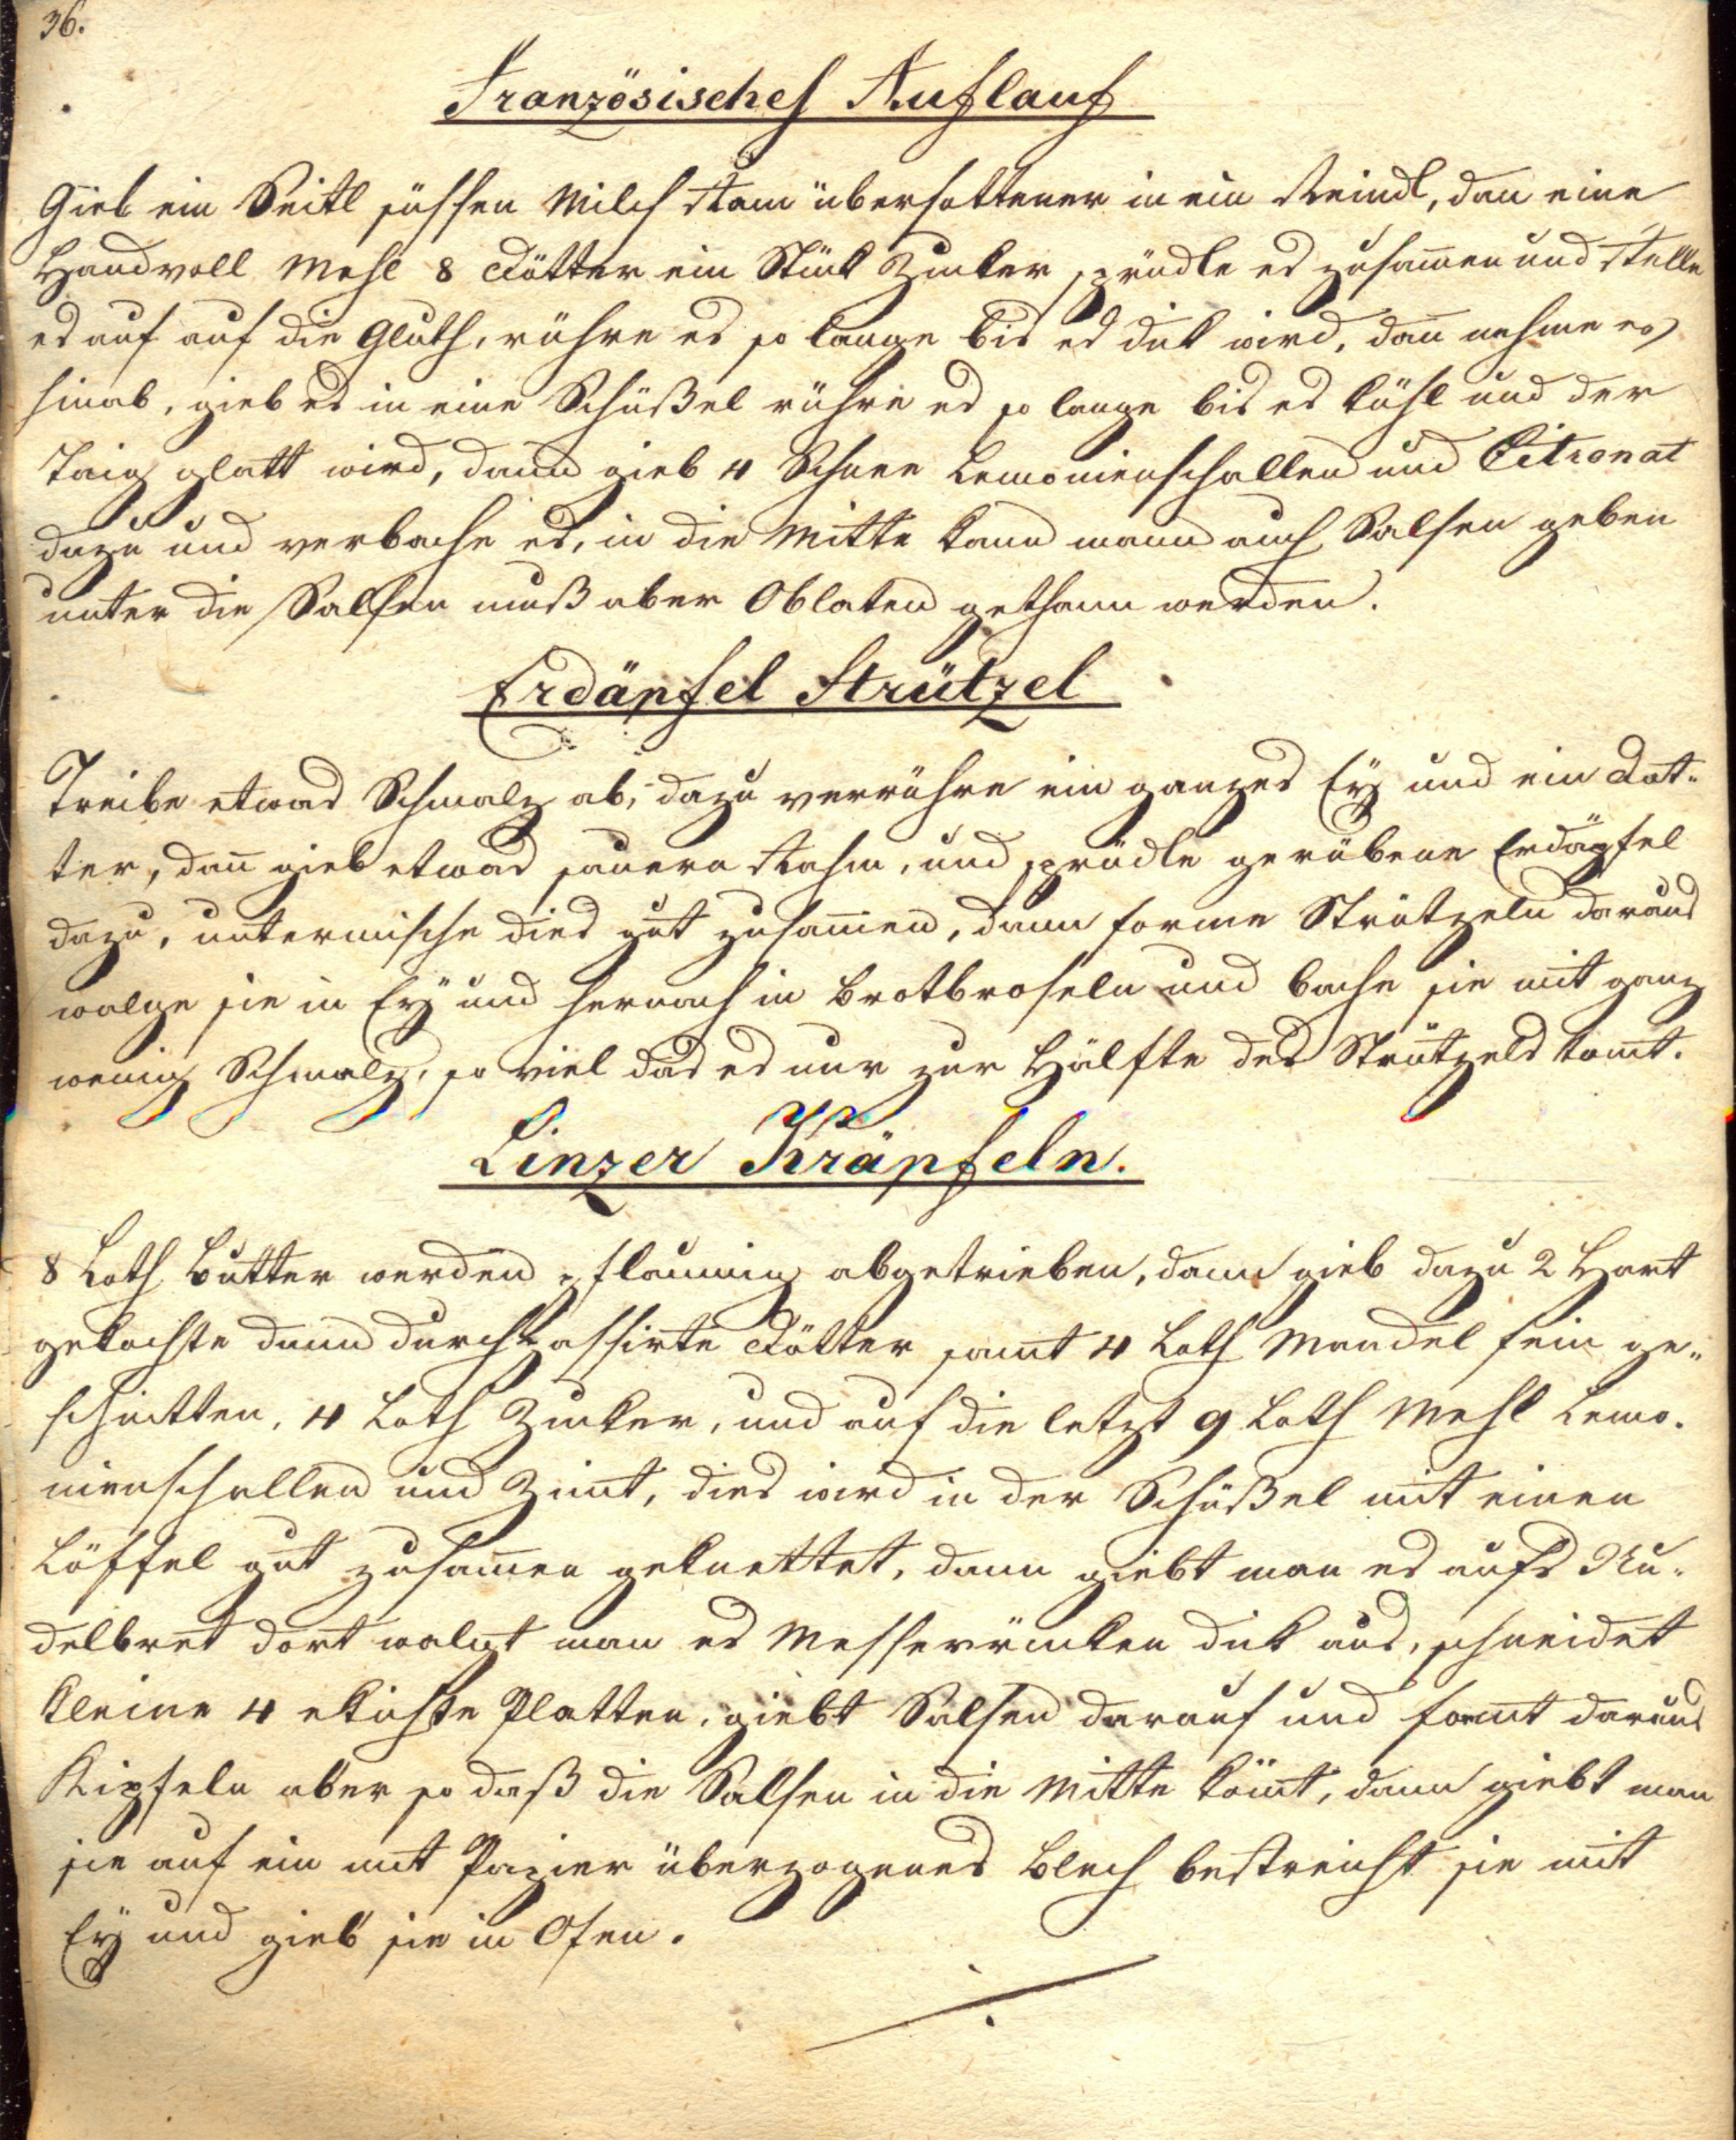 36.
Französisches Auflauf
Gieb ein Seitl süssen Milch Ram übersottener in ein Reindl, dan eine
Handvoll Mehl 8 Dötter ein Stück Zucker sprüdle es zusam̄en und stelle
es auf auf die Gluth, rühre es so lange bis es dik wird, dan̄ nehme es
hinab, gieb es in eine Schüßel rühre es so lange bis es kühl und der
Taig glatt wird, dann gieb 4 Schnee Lemonienschallen und Citronat
dazu und verbache es, in die Mitte kann mann auch Salsen geben
unter die Salsen muß aber Oblaten gethann werden.
Erdäpfel Strützel
Treibe etwas Schmalz ab, dazu verrühre ein ganzes Eÿ und ein Dot-
ter, dan̄ gieb etwas sauern Rahm, und sprüdle gerübene Erdäpfel
dazu, untermische dies gut zusam̄en, dann forme Strützeln daraus
walge sie in Eÿ und hernach in Brotbroseln und bache sie mit ganz
wenig Schmalz, so viel das es nur zur Hälfte des Strützels kom̄t.
Linzer Kräpfeln.
8 Loth Butter werden pflaumig abgetrieben, dann gieb dazu 2 Hart
gekochte dann durchpassirte Dötter samt 4 Loth Mandel fein ge-
schnitten, 4 Loth Zucker, und auf die letzt 9 Loth Mehl Lemo-
nienschallen und Zimt, dies wird in der Schüßel mit einen
Löffel gut zusam̄en geknettet, dann giebt man es aufs Nu-
delbret dort walgt man es Messerrücken dik aus, schneidet
kleine 4 ekichte Platten, giebt Salsen darauf und formt daraus
Kipfeln aber so daß die Salsen in die Mitte köm̄t, dann giebt man
sie auf ein mit Papier überzogenes Blech bestreicht sie mit
Eÿ und gieb sie in Ofen.